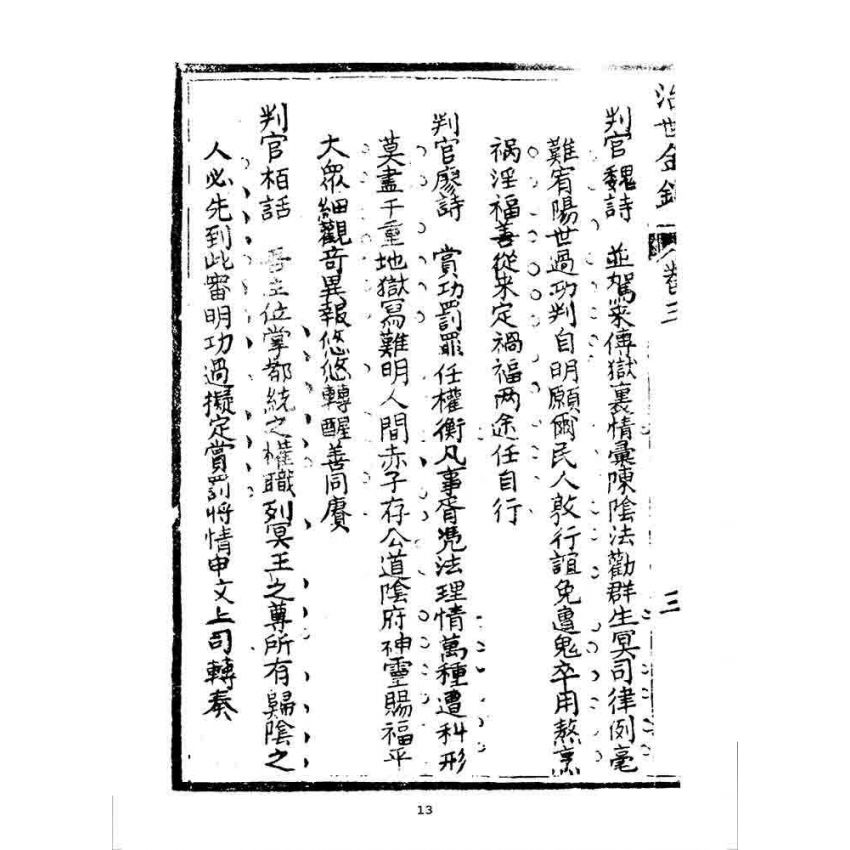 治世金鍼 卷三 三
判官魏詩 並駕來傳獄裏情彙陳陰法勸群生冥司律例毫
難宥陽世過功判自明願爾民人敦行誼免遭鬼卒用熬烹
禍淫福善從來定禍福两途任自行
判官廖詩 賞功罰罪任權衡凡事胥憑法理情萬種遭科形
莫盡千重地獄寫難明人間赤子存公道陰府神靈賜福平
大眾細觀奇異報悠悠轉醒善同賡
判官栢話 吾主位掌都統之權職列冥王之尊所有歸陰之
人必先到此審明功過擬定賞罰將情申文上司轉奏
13